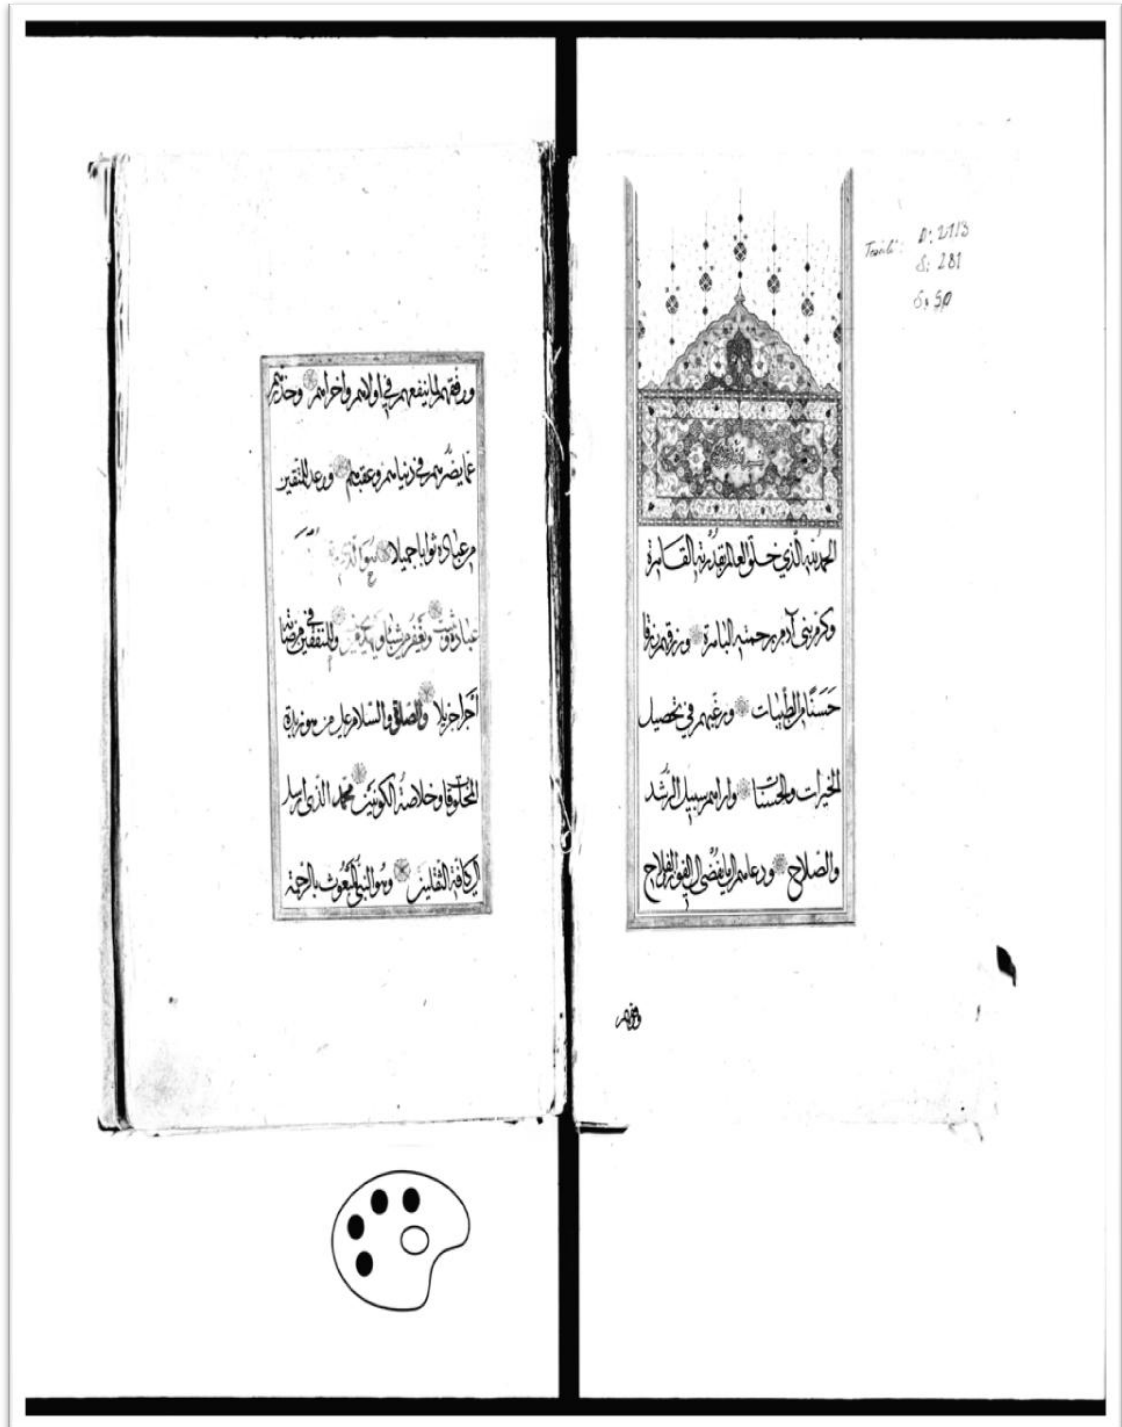 الحمد لله الذي خلق العالم بقدرته القاهرة
وكرم بني آدم برحمته الباهرة ورزقهم رزقا
حَسَنًا من الطيبات ورغبهم في تحصيل
الخيرات والحسنات واراهم سبيل الرشد
والصلاح ودعاهم الى ما يفضى الى الفوز والفلاح
ووفقهم
ووفقهم لما ينفعهم في اولاهم واخراهم وحذرهم
عما يضرهم في دنياهم وعقبهم ووعد للمتقين
من عباده ثوابا جميلا
عباده وللمنفقين في مرضاته
أجرا جزيلا والصلاة والسلام على من هو زبدة
المخلوقات وخلاصة الكونين محمد الذي ارسل
الى كافة الثقلين وهو النبي المبعوث بالرحمة
D: 2713
S: 281
S: 50